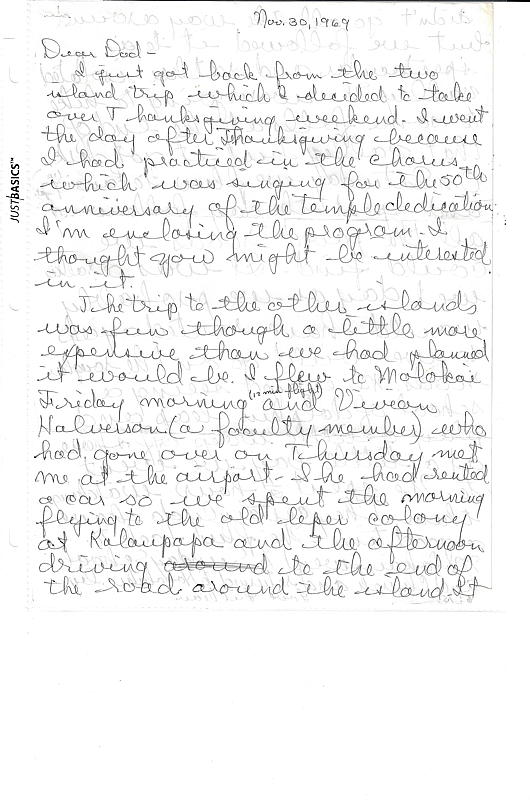 Nov. 30, 1969
Dear Dad -
I just got back from the two
island trip which I decided to take
over Thanksgiving weekend. I went
the day after Thanksgiving because
I had practiced in the chorus
which was singing for the 50th
anniversary of the temple dedication.
I'm enclosing the program. I
thought you might be interested
in it.
The trip to the other islands
was fun though a little more
expensive than we had planned
it would be. I flew to Molokai
Friday morning (12 min flight) and Vivian
Halverson (a faculty member) who
had gone over on Thursday met
me at the airport - She had rented
a car so we spent the morning
flying to the old leper colony
at Kalaupapa and the afternoon
driving around to the end of
the road around the island. It
JUSTBASICS™